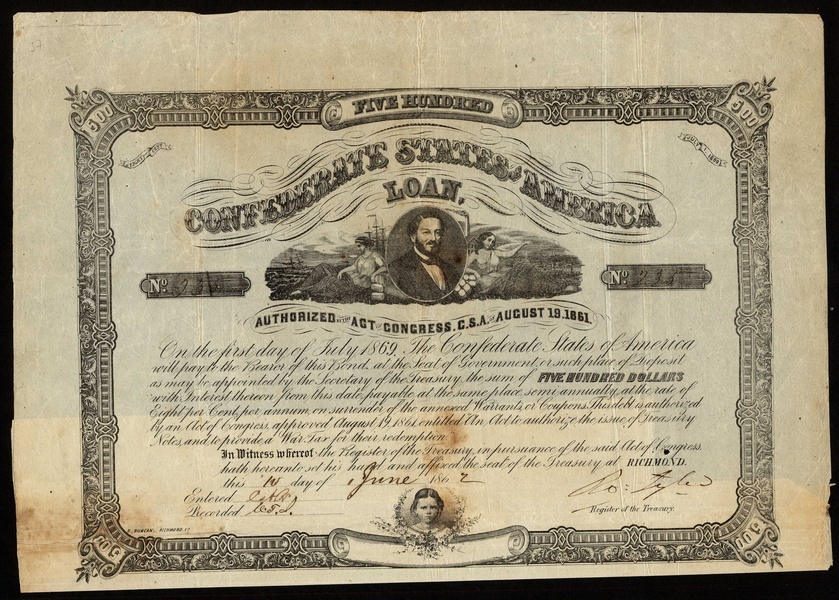 37
FIVE HUNDRED
500
500
CONFEDERATE STATES OF AMERICA
LOAN,
No 235
No 235
AUTHORIZED BY THE ACT OF CONGRESS, C.S.A. OF AUGUST 19.1861
On the first day of July 1869, The Confederate States of America
will pay to the Bearer of this Bond, at the Seat of Government, or such place of Deposit
as may be appointed by the Secretary of the Treasury, the sum of FIVE HUNDRED DOLLARS
with Interest thereon from this date, payable at the same place, semi annually, at the rate of
Eight per Cent, per annum, on surrender of the annexed Warrants, or Coupons. This debt is authorized
by an Act of Congress, approved August 19, 1861, entitled An Act to authorize the issue of Treasury
Notes, and to provide a War Tax for their redemption
In Witness whereof the Register of the Treasury, in pursuance of the said Act of Congress,
hath hereunto set his hand and affixed the seal of the Treasury at RICHMOND.
this 10 day of June 1862
Entered
Recorded
Ro. Tyler
Register of the Treasury.
DUNCAN, RICHMOND, VA
500
500